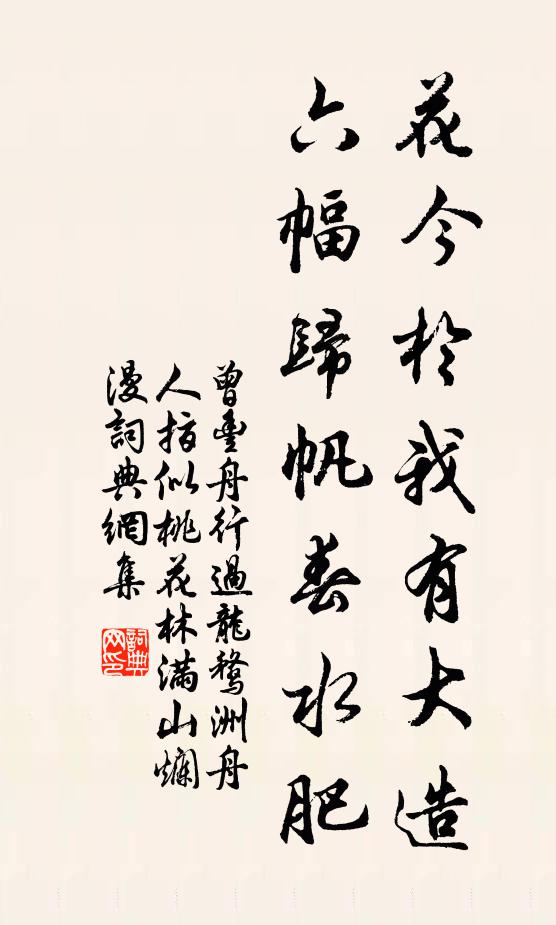 花今於我有大造
六幅歸帆春水肥
曾豐舟行過龍鶩洲舟
人指似桃花林滿山爛
漫詞典網集
詞典
网印